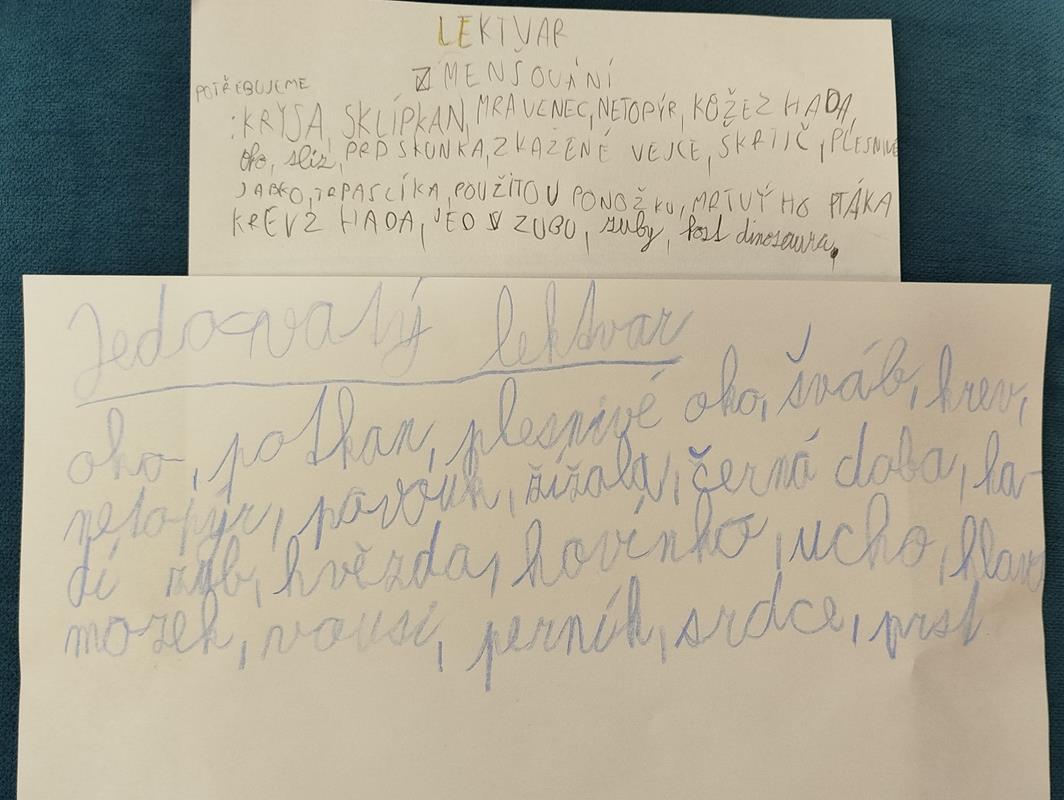 LEKTVAR
ZMENŠOVÁNÍ
POTŘEBUJEME
:KRYSA, SKLÍPKAN, MRAVENEC, NETOPÝR, KOŽEZ HADA,
oko, sliz, PRD SKUNKA, ZKAŽENÉ VEJCE, ŠKRTIČ, PLESNIVÉ
JABKO, TRPASLÍKA, POUŽITOU PONOŽKU, MRTVÝHO PTÁKA
KREV Z HADA, JED V ZUBU, zuby, kost dinosaura,
Jedovatý lektvar
oko, potkan, plesnivé oko, šváb, krev,
netopýr, pavouk, žížala, černá doba, ha-
dí zub, hvězda, hovínko, ucho, hlava
mozek, vousi, perník, srdce, prst